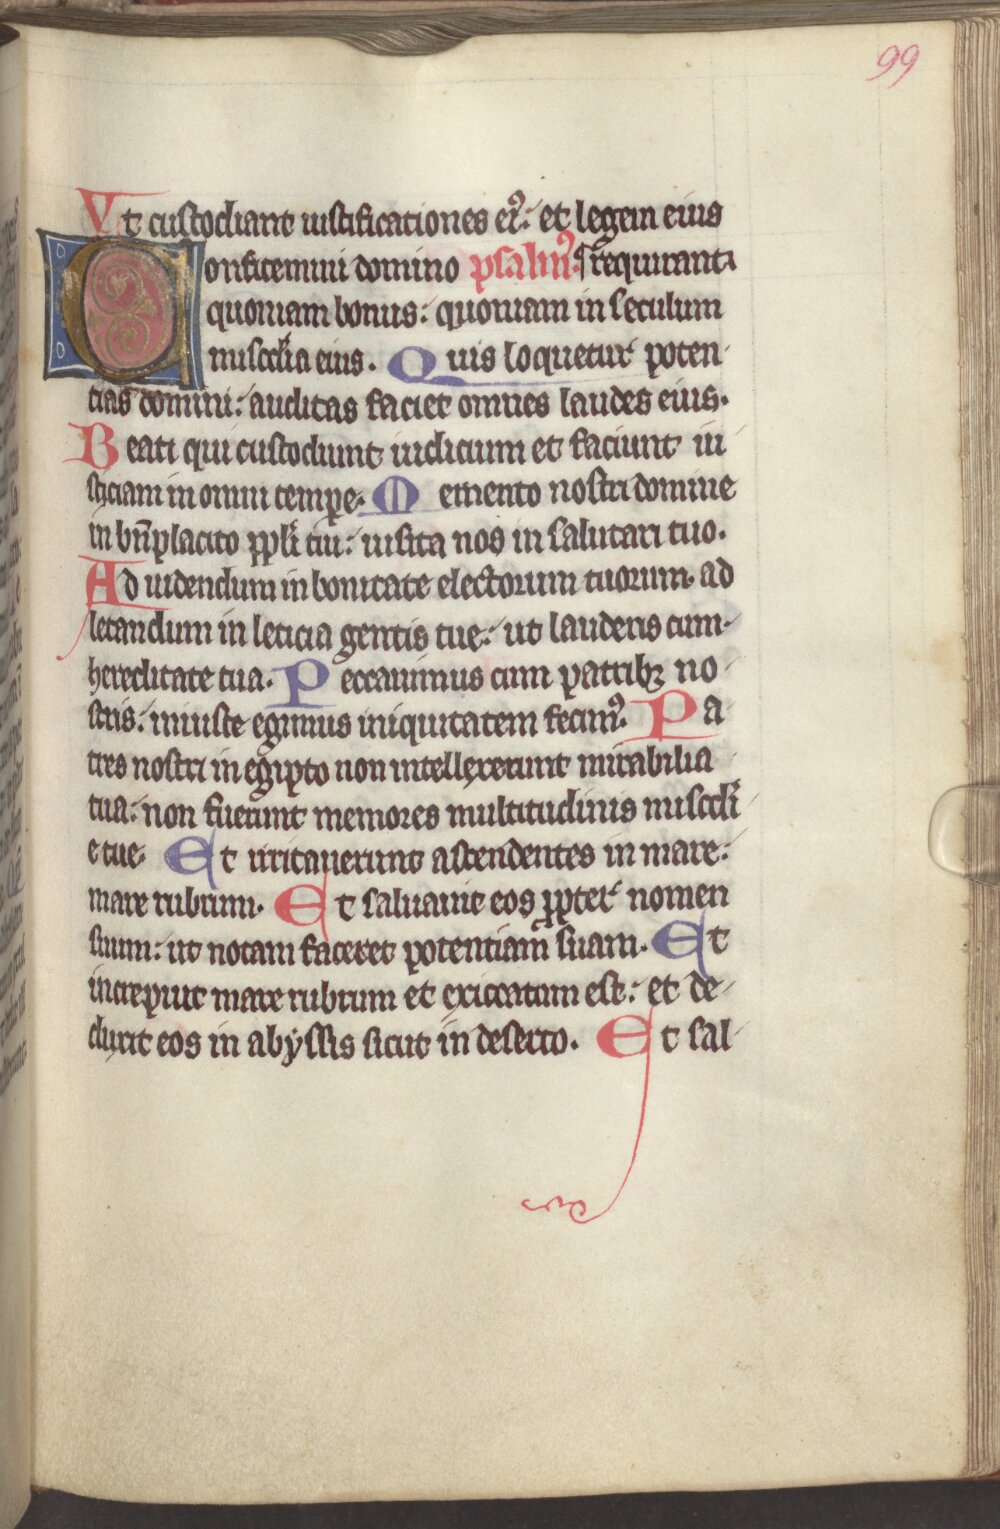 99
Vt custodiant iustificationes eiꝰ: et legem eius
Confitemini domino psalmꝰ. requirant
quoniam bonus: quoniam in seculum
misc̄dia eius. Quis loquetur poten
tias domini: auditas faciet omnes laudes eius.
Beati qui custodiunt iudicium et faciunt iu
sticiam in omni tempꝛe. Memento nostri domine
in bn̄placito ppl̄i tui: uisita nos in salutari tuo.
Ad uidendum in bonitate electorum tuorum. ad
letandum in leticia gentis tue: ut lauderis cum
hereditate tua. Peccauimus cum patribꝫ no
stris: iniuste egimus iniquitatem fecimꝰ. Pa
tres nostri in egipto non intellexerunt mirabilia
tua: non fuerunt memores multitudinis misc̄di
e tue. Et irritauerunt ascendentes in mare:
mare rubrum. Et saluauit eos ꝓpter nomen
suum: ut notam faceret potentiam suam. Et
increpuit mare rubrum et exiccatum est: et de
duxit eos in abyssis sicut in deserto. Et sal